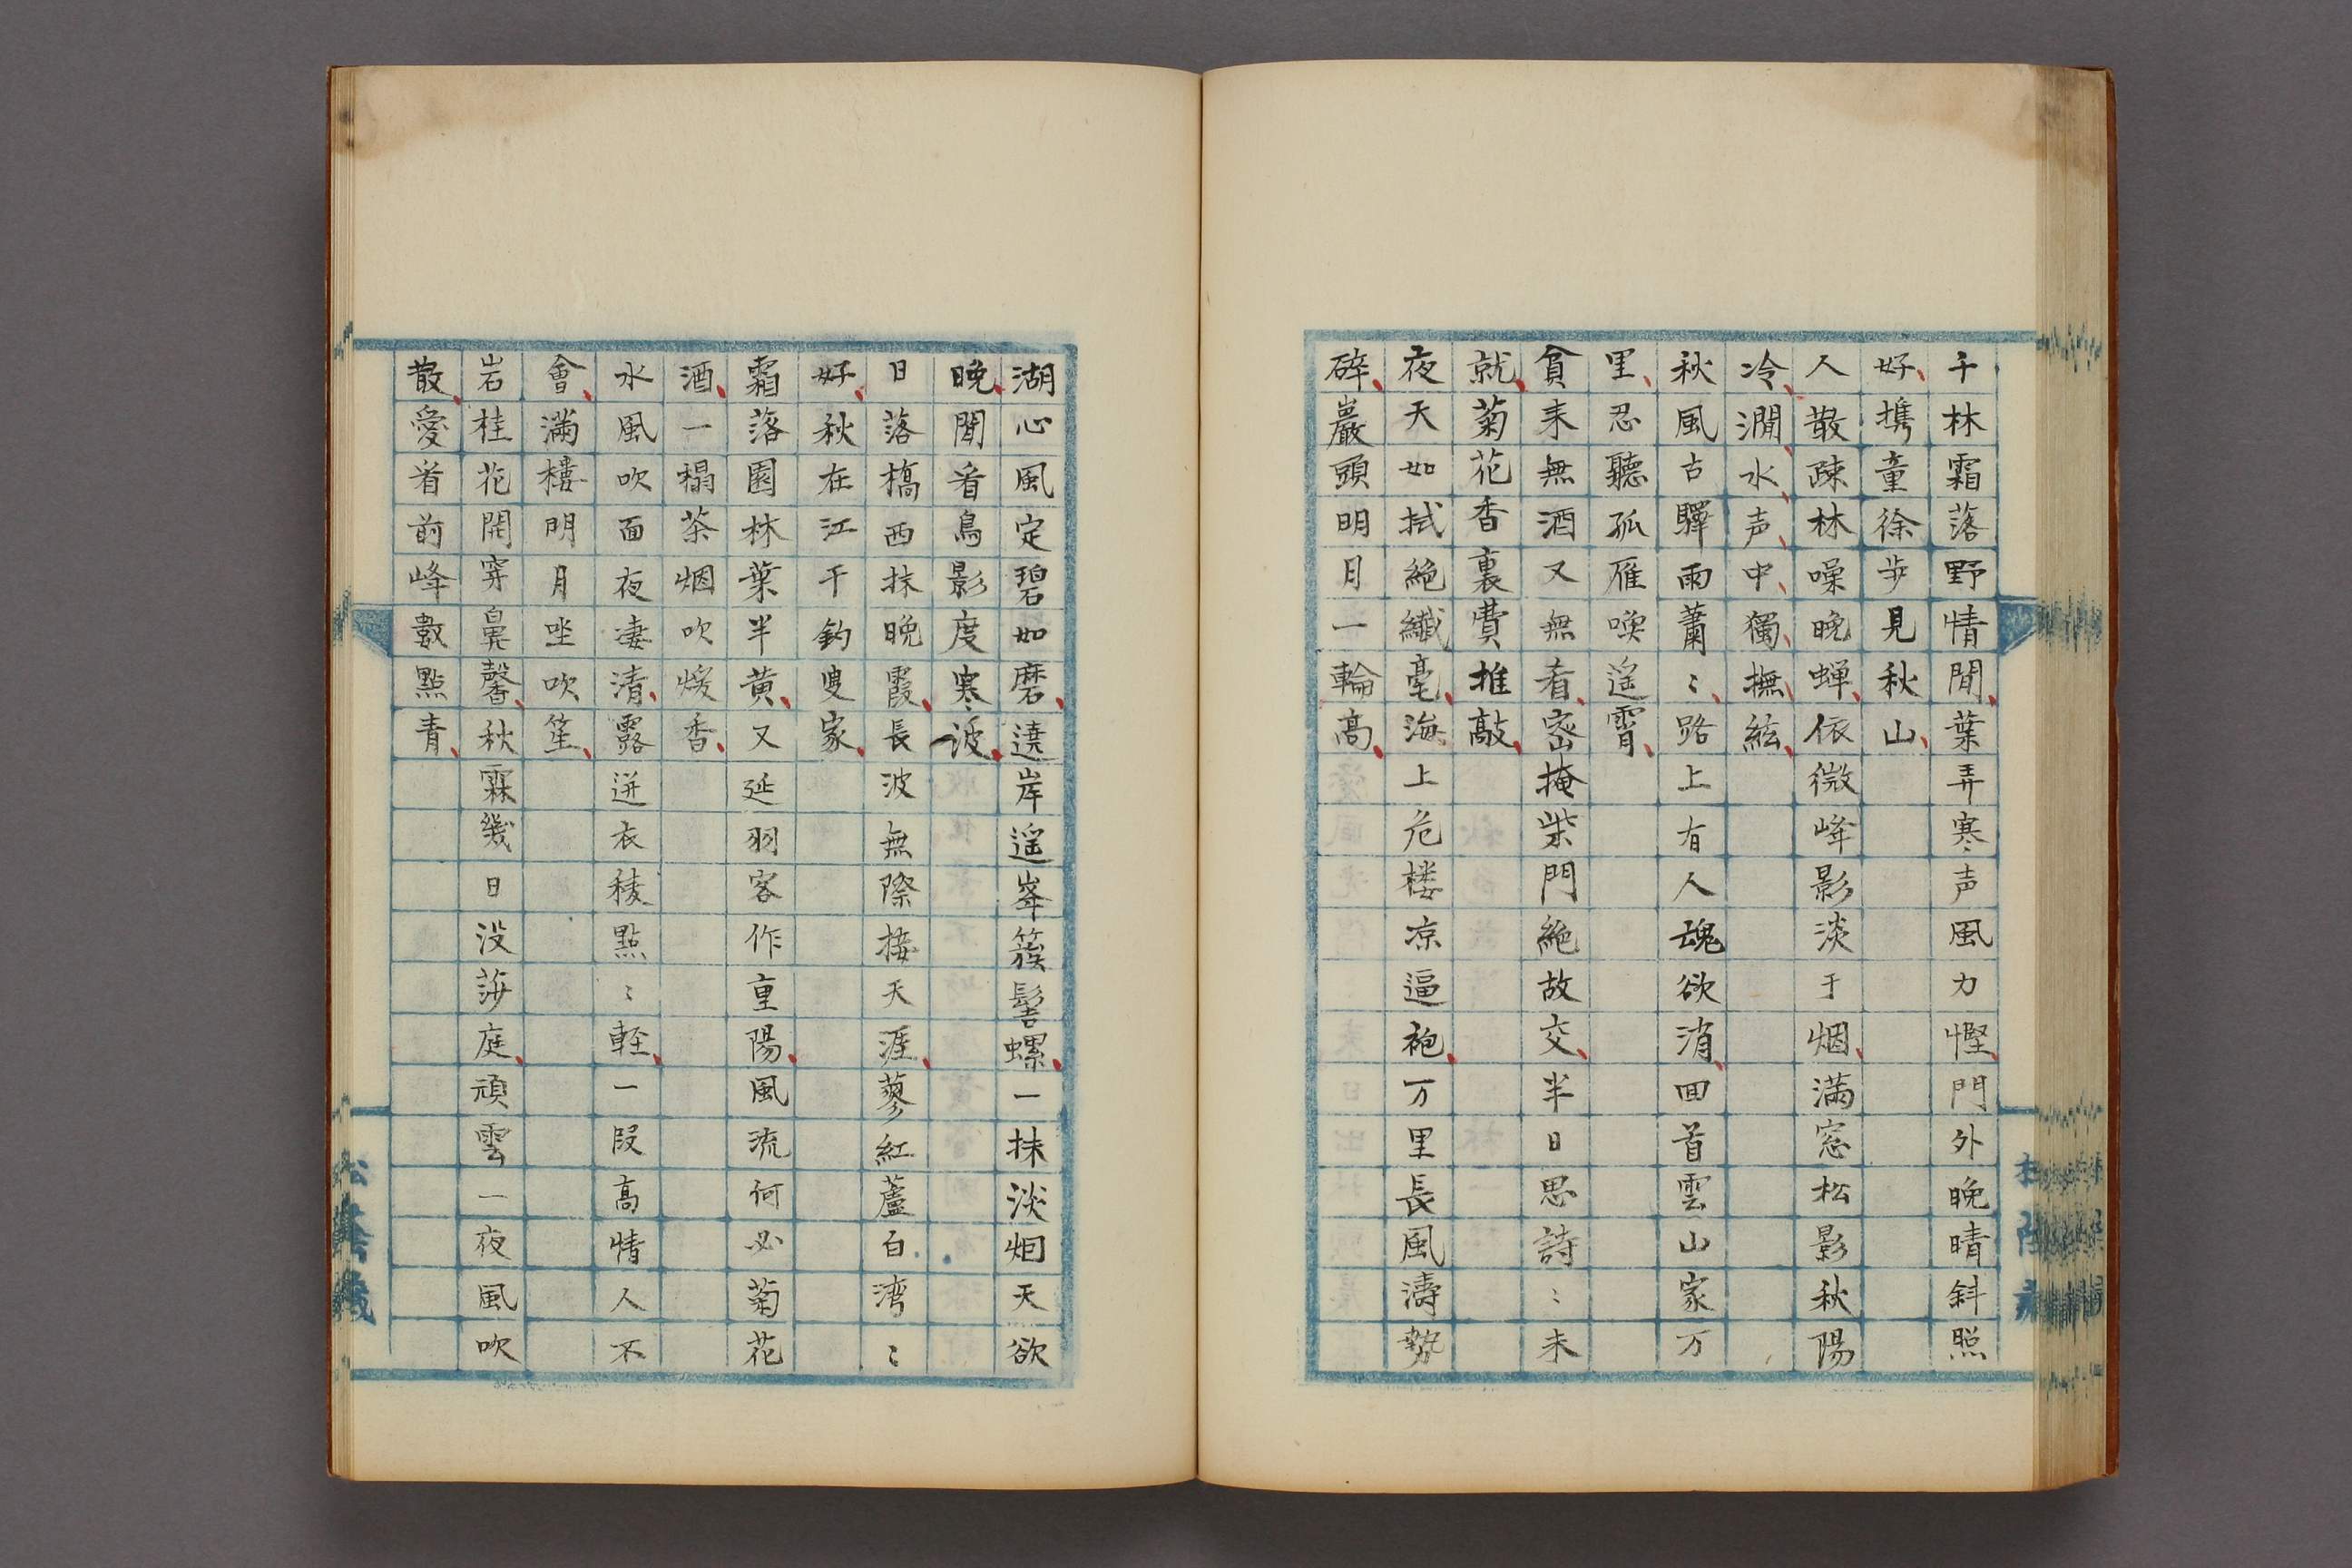 千林霜落野情閒葉弄寒声風力慳門外晩晴斜照
好携童徐歩見秋山
人散疎林噪晩蝉依微峰影淡于烟満窓松影秋陽
冷澗水声中獨撫絃
秋風古驛雨蕭〻路上有人魂欲消回首雲山家万
里忍聽孤雁喚遥霄
貧来無酒又無肴密掩柴門絶故交半日思詩〻未
就菊花香裏費推敲
夜天如拭絶纖毫海上危楼凉逼袍万里長風濤勢
碎巖頭明月一輪高
湖心風定碧如磨遶岸遥峯簇髻螺一抹淡烟天欲
晩閒看鳥影度寒波
日落橋西抹晩霞長波無際接天涯蓼紅蘆白湾〻
好秋在江干釣叟家
霜落園林葉半黄又延羽客作重陽風流何必菊花
酒一榻茶烟吹煖香
水風吹面夜凄清露迸衣稜點〻軽一段高情人不
會満樓明月坐吹笙
岩桂花開穿鼻馨秋霖幾日没莎庭頑雲一夜風吹
散愛看前峰數點青